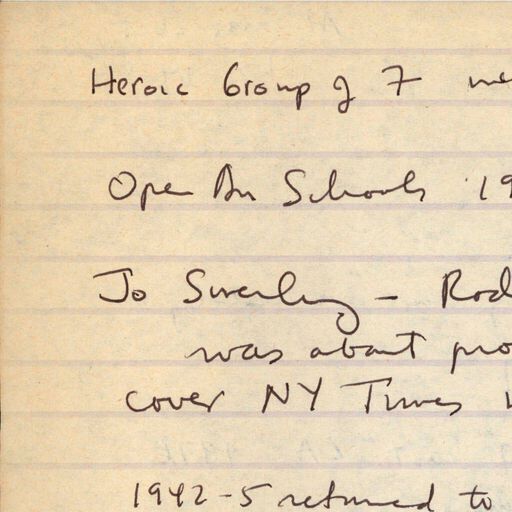 Heroic Group of 7 me
Open Air Schools 19
Jo Swerling - Rod
was about pro
cover NY Times
1942-5 returned to